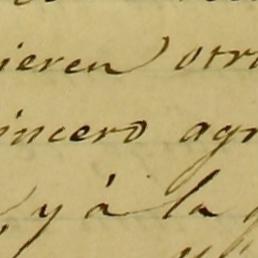 ieren otr
incero agr
, y á la g